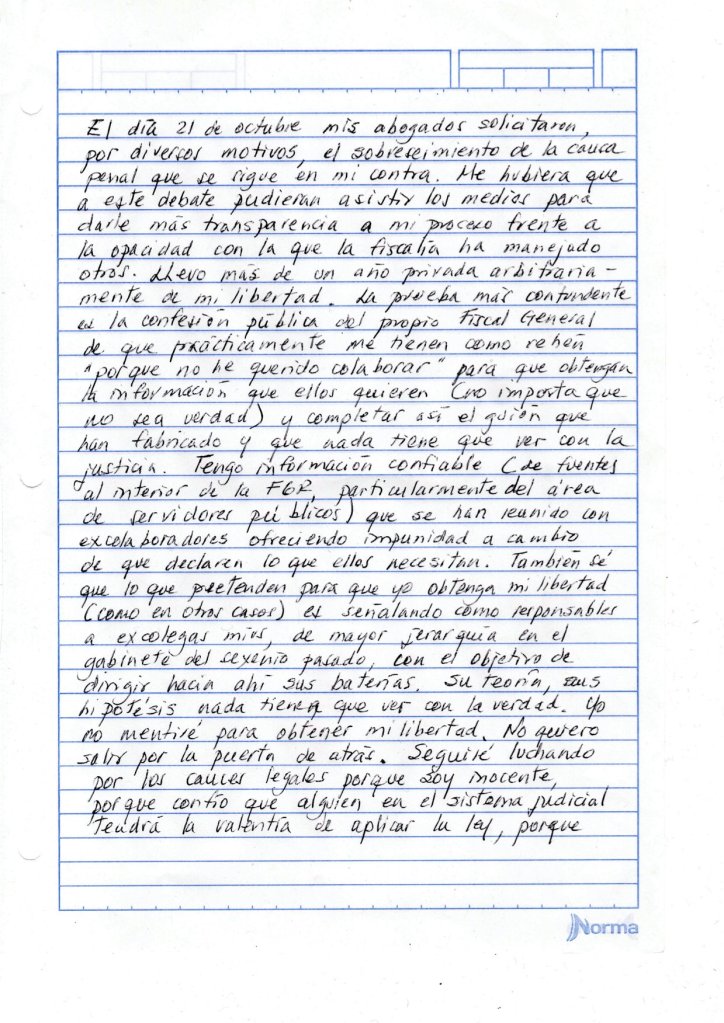 El día 21 de octubre mis abogados solicitaron,
por diversos motivos, el sobreseimiento de la causa
penal que se sigue en mi contra. Me hubiera que
a este debate pudieran asistir los medios para
darle más transparencia a mi proceso frente a
la opacidad con la que la fiscalía ha manejado
otros. Llevo más de un año privada arbitraria-
mente de mi libertad. La prueba más contundente
es la confesión pública del propio Fiscal General
de que prácticamente me tienen como rehén
"porque no he querido colaborar" para que obtengan
la información que ellos quieren (no importa que
no sea verdad) y completar así el guión que
han fabricado y que nada tiene que ver con la
justicia. Tengo información confiable (de fuentes
al interior de la FGR, particularmente del área
de servidores públicos) que se han reunido con
excolaboradores ofreciendo impunidad a cambio
de que declaren lo que ellos necesitan. También sé
que lo que pretenden para que yo obtenga mi libertad
(como en otros casos) es señalando como responsables
a excolegas míos, de mayor jerarquía en el
gabinete del sexenio pasado, con el objetivo de
dirigir hacia ahí sus baterías. Su teoría, sus
hipótesis nada tienen que ver con la verdad. Yo
no mentiré para obtener mi libertad. No quiero
salir por la puerta de atrás. Seguiré luchando
por los cauces legales porque soy inocente,
porque confío que alguien en el sistema judicial
tendrá la valentía de aplicar la ley, porque
Norma